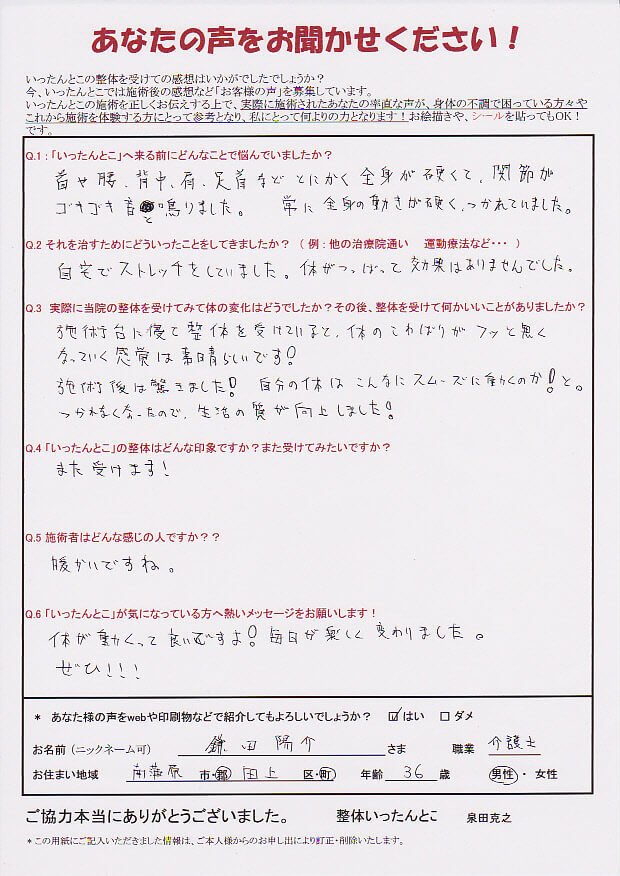 あなたの声をお聞かせください！
いったんとこの整体を受けての感想はいかがでしたでしょうか？
今、いったんとこでは施術後の感想など「お客様の声」を募集しています。
いったんとこの施術を正しくお伝えする上で、実際に施術されたあなたの率直な声が、身体の不調で困っている方々や
これから施術を体験する方にとって参考となり、私にとって何よりの力となります！お絵描きや、シールを貼ってもOK！
です。
Q.1：「いったんとこ」へ来る前にどんなことで悩んでいましたか？
首や腰、背中、肩、足首など とにかく全身が硬くて、関節が
ゴキゴキ音と鳴りました。 常に全身の動きが硬く、つかれていました。
Q.2 それを治すためにどういったことをしてきましたか？（例：他の治療院通い 運動療法など・・・）
自宅でストレッチをしていました。体がつっぱって効果はありませんでした。
Q.3 実際に当院の整体を受けてみて体の変化はどうでしたか？その後、整体を受けて何かいいことがありましたか？
施術台に寝て整体を受けていると、体のこわばりがフッと無く
なっていく感覚は素晴らしいです！
施術後は驚きました！ 自分の体はこんなにスムーズに動くのか！と。
つかれなくなったので、生活の質が向上しました！
Q.4「いったんとこ」の整体はどんな印象ですか？また受けてみたいですか？
また受けます！
Q.5 施術者はどんな感じの人ですか？？
暖かいですね。
Q.6「いったんとこ」が気になっている方へ熱いメッセージをお願いします！
体が動くって良いですよ！毎日が楽しく変わりました。
ぜひ！！！
＊ あなた様の声をwebや印刷物などで紹介してもよろしいでしょうか？ ☑はい □ダメ
お名前（ニックネーム可） 鎌田陽介 さま 職業 介護士
お住まい地域 南蒲原 市・郡 田上 区・町 年齢 36 歳 男性・女性
ご協力本当にありがとうございました。 整体いったんとこ 泉田克之
＊この用紙にご記入いただきました情報は、ご本人様からのお申し出により訂正・削除いたします。